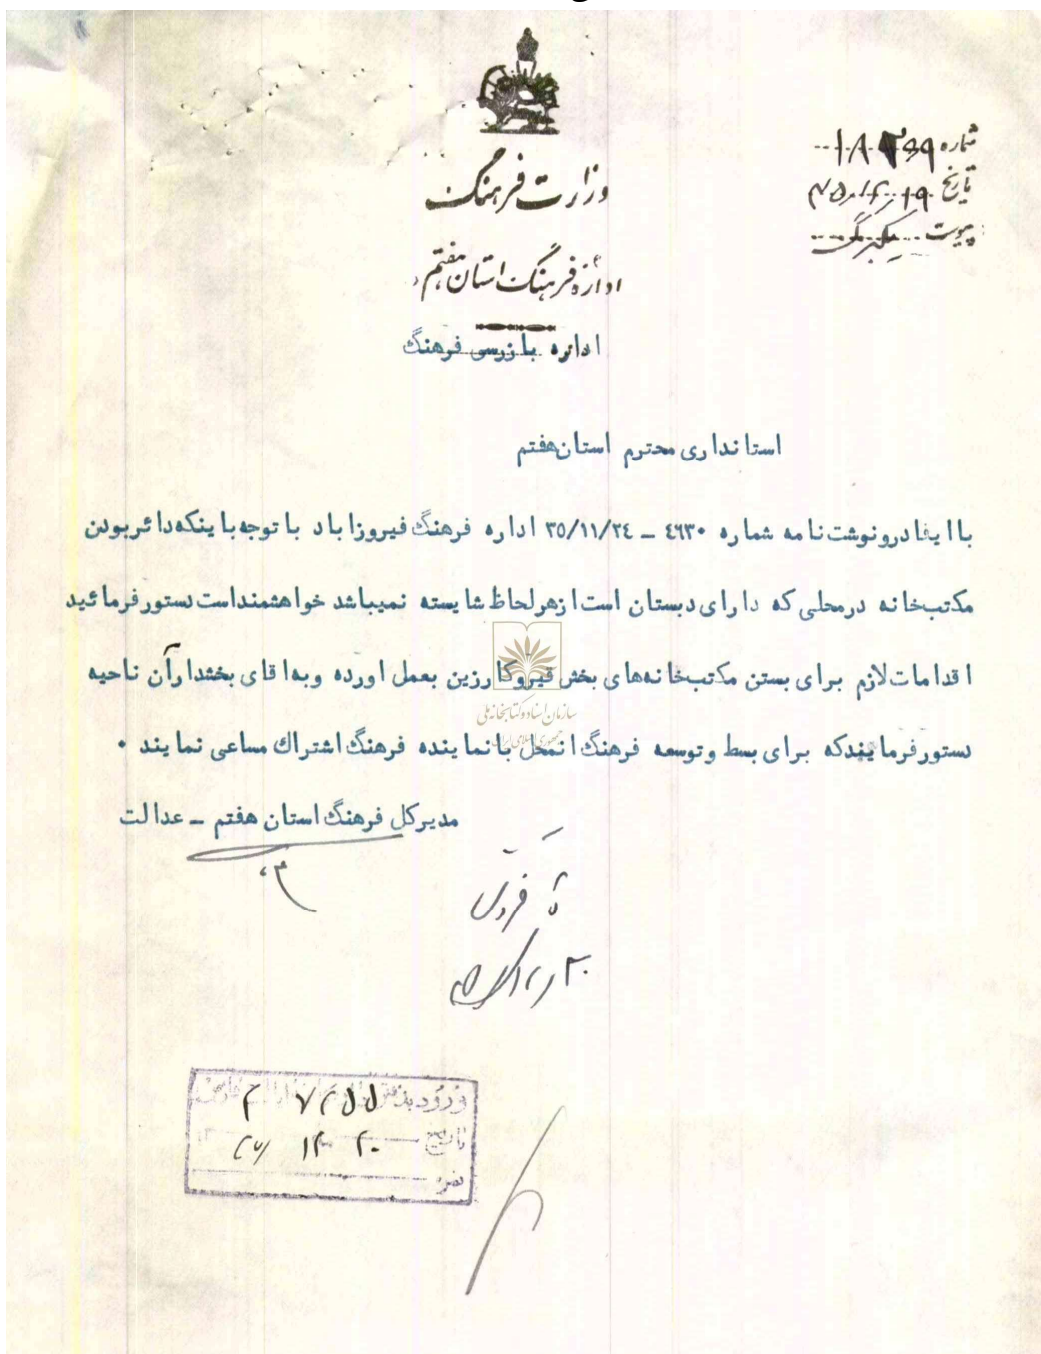 وزارت فرهنگ
اداره فرهنگ استان هفتم
اداره بازرسی فرهنگ
شماره
تاریخ
پیوست یکبرگ
استانداری محترم استان هفتم
با ایفاد رونوشت نامه شماره ٤٦٣٠ – ٣٥/١١/٢٤ اداره فرهنگ فیروزاباد با توجه باینکه دائر بودن
مکتبخانه درمحلی که دارای دبستان است ازهر لحاظ شایسته نمیباشد خواهشمنداست دستور فرمائید
اقدامات لازم برای بستن مکتبخانه‌های بخش قیروکارزین بعمل اورده وبه اقای بخشدار آن ناحیه
دستور فرمایند که برای بسط وتوسعه فرهنگ انمحل بانماینده فرهنگ اشتراك مساعی نمایند ۰
سازمان اسناد و کتابخانه ملی
جمهوری اسلامی ایران
مدیرکل فرهنگ استان هفتم – عدالت
ورود بدفتر
تاریخ
نمره